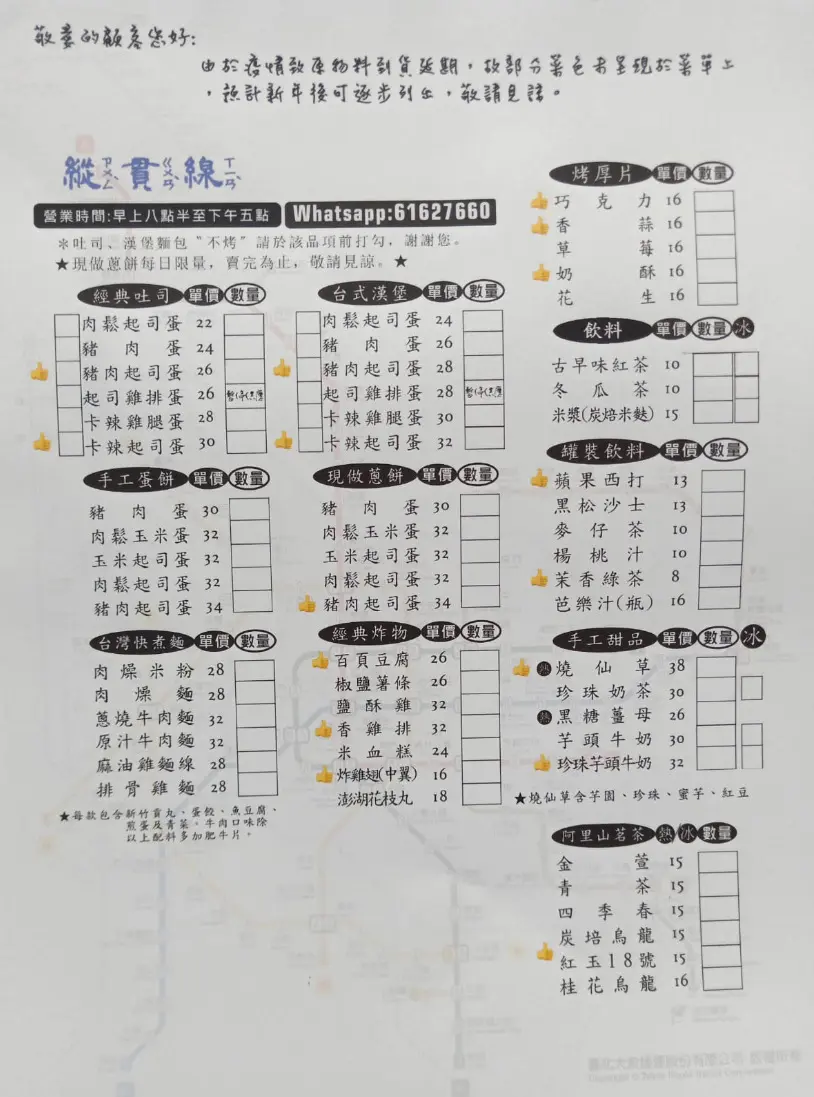 敬愛的顧客您好:
由於疫情致原物料到貨延期,故部分菜色未呈現於菜單上
,預計新年後可逐步列出,敬請見諒。
縱ㄗㄨㄥ貫ㄍㄨㄢ線ㄒㄧㄢ
營業時間:早上八點半至下午五點 Whatsapp:61627660
*吐司、漢堡麵包"不烤"請於該品項前打勾,謝謝您。
★現做蔥餅每日限量,賣完為止,敬請見諒。★
經典吐司 單價 數量
肉鬆起司蛋 22
豬肉蛋 24
豬肉起司蛋 26
起司雞排蛋 26 暫停供應
卡辣雞腿蛋 28
卡辣起司蛋 30
台式漢堡 單價 數量
肉鬆起司蛋 24
豬肉蛋 26
豬肉起司蛋 28
起司雞排蛋 28 暫停供應
卡辣雞腿蛋 30
卡辣起司蛋 32
手工蛋餅 單價 數量
豬肉蛋 30
肉鬆玉米蛋 32
玉米起司蛋 32
肉鬆起司蛋 32
豬肉起司蛋 34
現做蔥餅 單價 數量
豬肉蛋 30
肉鬆玉米蛋 32
玉米起司蛋 32
肉鬆起司蛋 32
豬肉起司蛋 34
台灣快煮麵 單價 數量
肉燥米粉 28
肉燥麵 28
蔥燒牛肉麵 32
原汁牛肉麵 32
麻油雞麵線 28
排骨雞麵 28
★每款包含新竹貢丸、蛋餃、魚豆腐、
煎蛋及青菜。牛肉口味除
以上配料多加肥牛片。
經典炸物 單價 數量
百頁豆腐 26
椒鹽薯條 26
鹽酥雞 32
香雞排 32
米血糕 24
炸雞翅(中翼) 16
澎湖花枝丸 18
烤厚片 單價 數量
巧克力 16
香蒜 16
草莓 16
奶酥 16
花生 16
飲料 單價 數量 冰
古早味紅茶 10
冬瓜茶 10
米漿(炭焙米麩) 15
罐裝飲料 單價 數量
蘋果西打 13
黑松沙士 13
麥仔茶 10
楊桃汁 10
茉香綠茶 8
芭樂汁(瓶) 16
手工甜品 單價 數量 冰
熱 燒仙草 38
珍珠奶茶 30
熱 黑糖薑母 26
芋頭牛奶 30
珍珠芋頭牛奶 32
★燒仙草含芋圓、珍珠、蜜芋、紅豆
阿里山茗茶 熱 冰 數量
金萱 15
青茶 15
四季春 15
炭培烏龍 15
紅玉18號 15
桂花烏龍 16